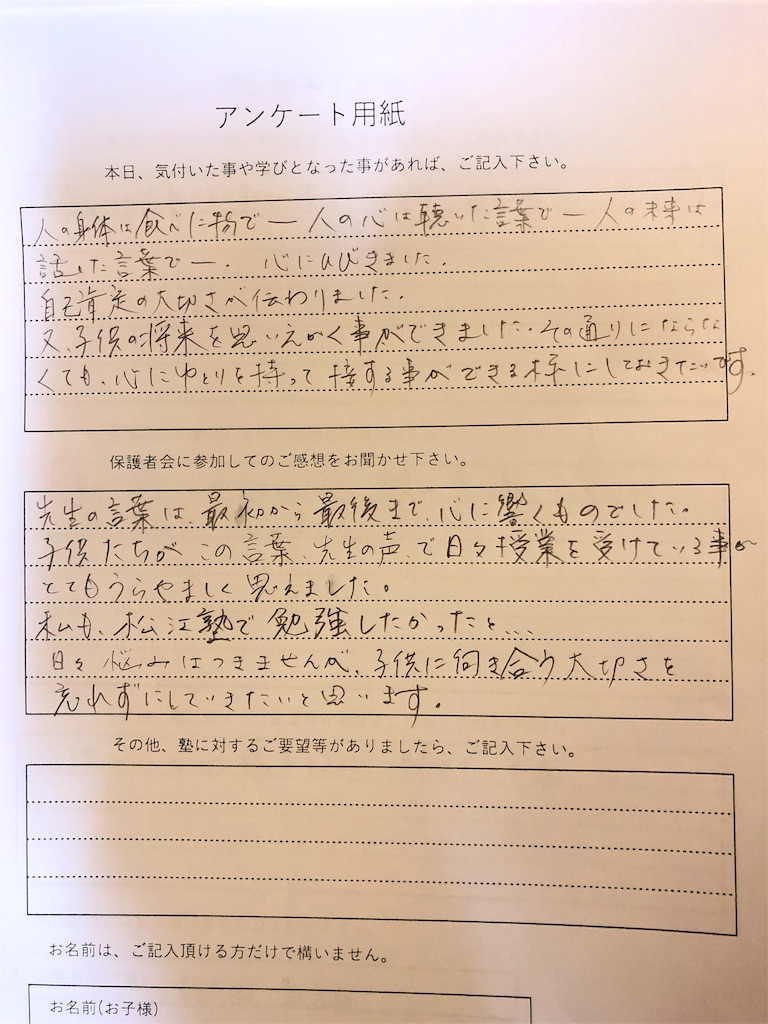 アンケート用紙
本日、気付いた事や学びとなった事があれば、ご記入下さい。
人の身体は食べた物で ー 人の心は聴いた言葉で ー 人の未来は
話した言葉で ー. 心にひびきました.
自己肯定の大切さが伝わりました.
又、子供の将来を思いえがく事ができました. その通りにならな
くても、心にゆとりを持って接する事ができる様にしておきたいです.
保護者会に参加してのご感想をお聞かせ下さい。
先生の言葉は、最初から最後まで、心に響くものでした。
子供たちが この言葉、先生の声、で日々授業を受けている事が
とてもうらやましく思えました。
私も、松江塾で勉強したかったと...
日々悩みはつきませんが、子供に向き合う大切さを
忘れずにしていきたいと思います。
その他、塾に対するご要望等がありましたら、ご記入下さい。
お名前は、ご記入頂ける方だけで構いません。
お名前(お子様)